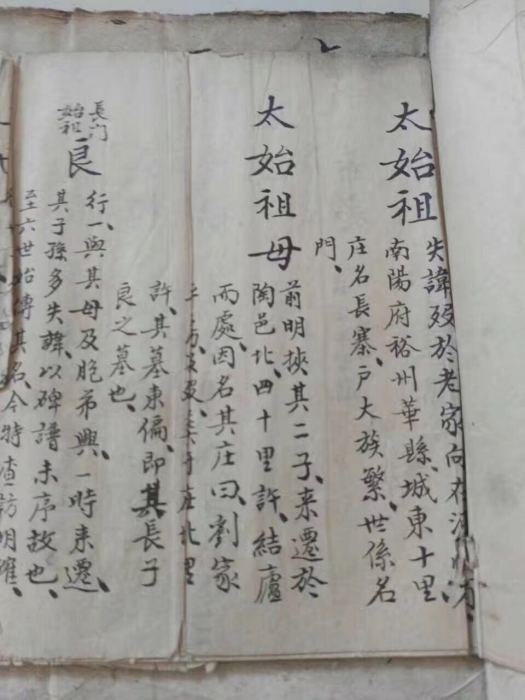 太始祖
失諱歿於老家向在河南
南陽府裕州華縣城東十里
庄名長寨戶大族繁世係名
門
太始祖母
前明挾其二子來遷於
陶邑北四十里許結廬
而處因名其庄曰劉家
庄北里
許其墓東偏即其長子
良之墓也
長門
始祖
良
行一與其母及胞弟興一時来遷
其子孫多失諱以碑譜未序故也
至六世始傳其名今特查訪明確